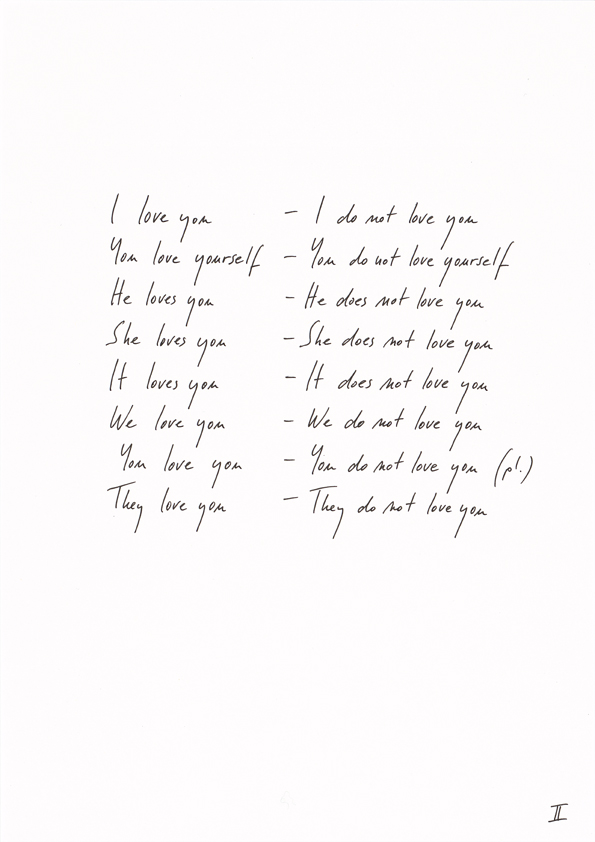 I love you – I do not love you
You love yourself – You do not love yourself
He loves you – He does not love you
She loves you – She does not love you
It loves you – It does not love you
We love you – We do not love you
You love you – You do not love you (pl.)
They love you – They do not love you
II